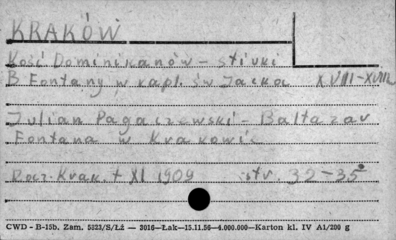 KRAKÓW
Kość Dominikanów - stiuki
B Fontany w kapl. św Jacka XVII-XVIII
Julian Pagaczewski - Baltazar
Fontana w Krakowie
Rocz. Krak. t XI 1909 str. 32-35
CWD - B-15b. Zam. 5323/S/Lż — 3016—Łak—15.11.56—4.000.000—Karton kl. IV A1/200 g